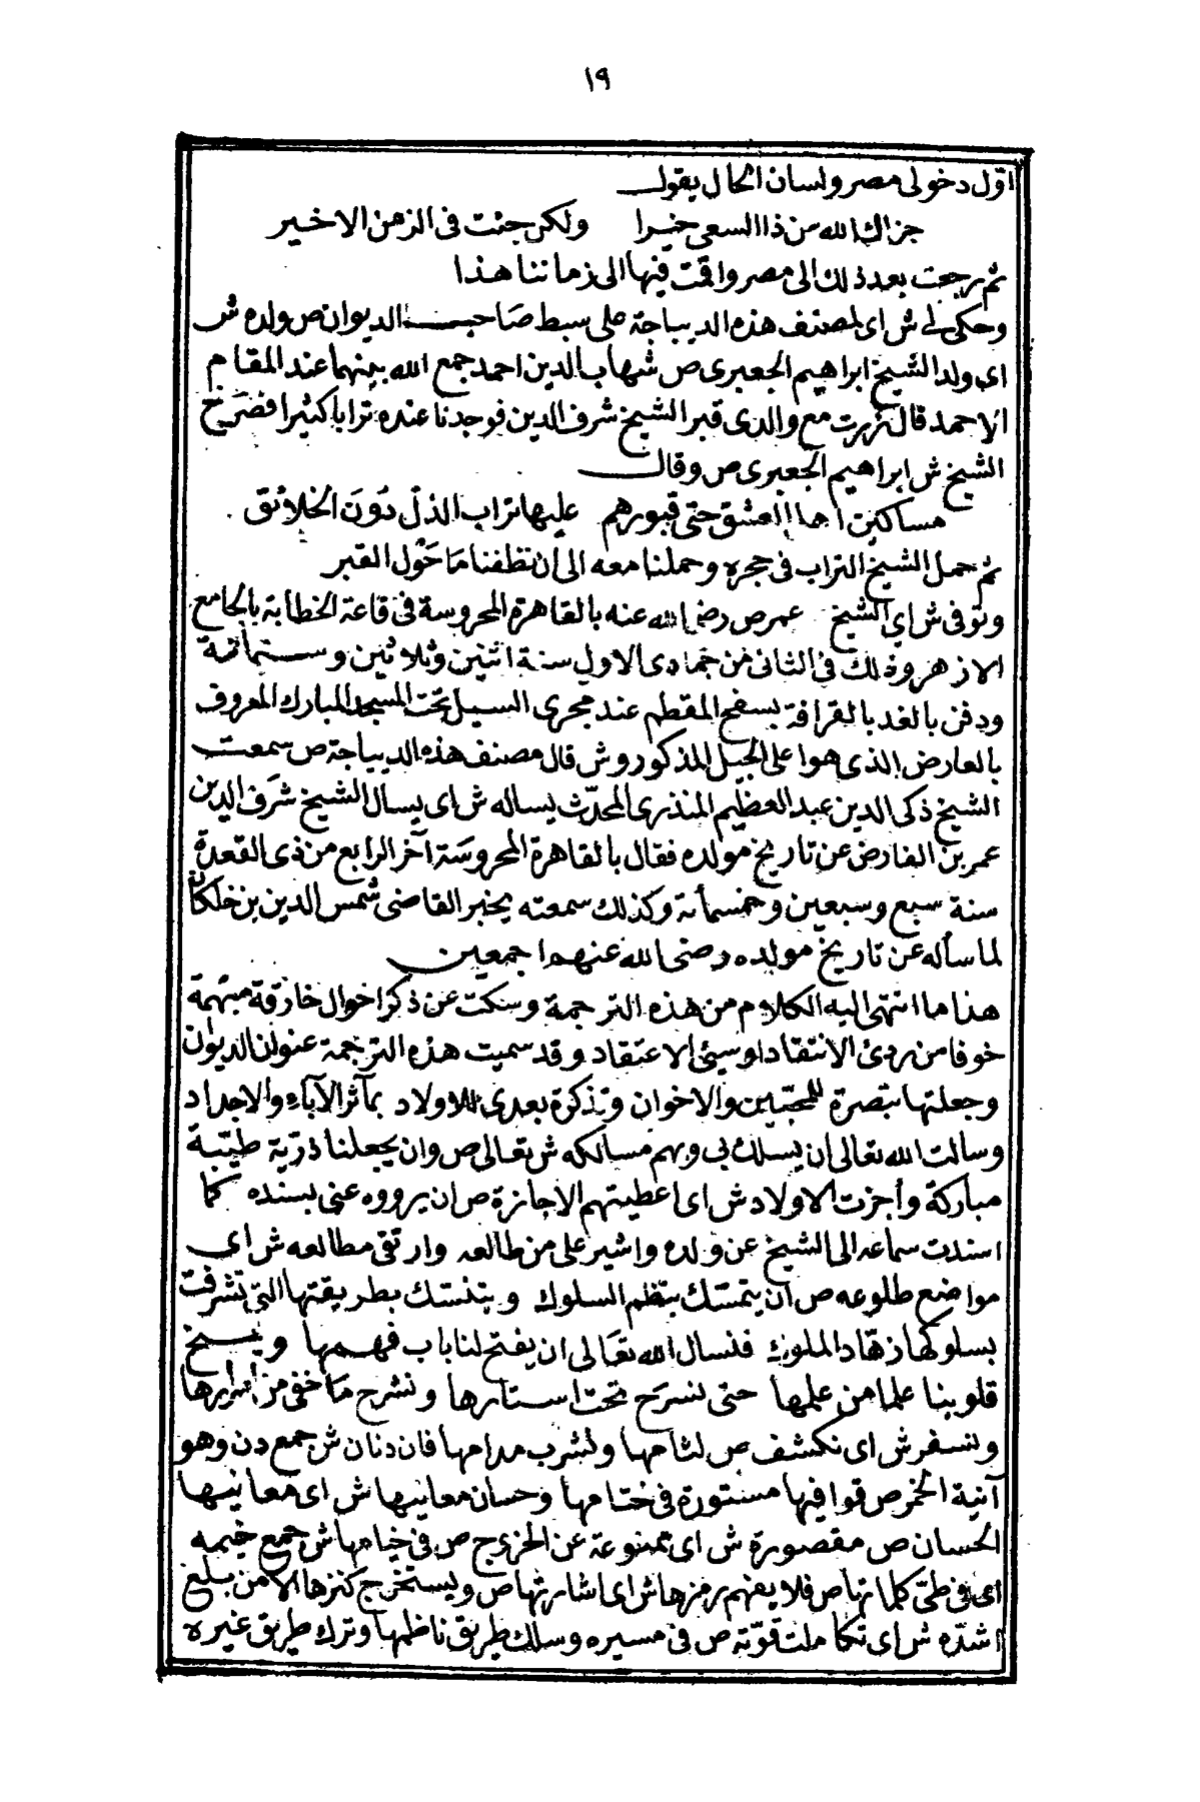 ١٩
اوّل دخولى مصر ولسان الحال يقول
جزاك الله من ذا السعى خيرا ولكن جئت فى الزمن الاخير
ثم رجعت بعد ذلك الى مصر واقمت فيها الى زماننا هذا
وحكى لى ش اى لمصنف هذه الديباجة على سبط صاحب الديوان ص ولده ش
اى ولد الشيخ ابراهيم الجعبرى ص شهاب الدين احمد جمع الله بينهما عند المقام
الاحمد قال زرت مع والدى قبر الشيخ شرف الدين فوجدنا عنده ترابا كثيرا فصرخ
الشيخ ش ابراهيم الجعبرى ص وقال
مساكين اهل العشق حتى قبورهم عليها تراب الذلّ دُونَ الخلائق
ثم حمل الشيخ التراب فى حجره وحملنا معه الى ان نظفنا مَا حَوْل القبر
وتوفى ش اي الشيخ عمر ص رضى الله عنه بالقاهرة المحروسة فى قاعة الخطابة بالجامع
الازهر وذلك فى الثانى من جمادى الاول سنة اثنين وثلاثين وستمائة
ودفن بالغد بالقرافة بسفح المقطم عند مجرى السيل تحت المسجد المبارك المعروف
بالعارض الذى هو اعلى الجبل المذكور وش قال مصنف هذه الديباجة ص سمعت
الشيخ ذكى الدين عبد العظيم المنذرى المحدّث يساله ش اى يسال الشيخ شرَف الدين
عمر بن الفارض عن تاريخ مولده فقال بالقاهرة المحروسَة آخر الرابع من ذى القعدة
سنة سبع وسبعين وخمسمائة وكذلك سمعته يخبر القاضى شمس الدين بن خلكان
لما سأله عن تاريخ مولده رضى الله عنهم اجمعين
هذا ما انتهى اليه الكلام من هذه الترجمة وسكتّ عن ذكر احوال خارقة مبهمة
خوفا من ردئ الانتقاد او سيئ الاعتقاد وقد سميت هذه الترجمة عنوان الديوان
وجعلتها تبصرة للمحبّين والاخوان وتذكرة بعدى للاولاد بمآثر الآباء والاجداد
وسالت الله تعالى ان يسلك بى وبهم مسالكه ش تعالى ص وان يجعلنا ذرّية طيّبة
مباركة وأجزت الاولاد ش اى اعطيتهم الاجازة ص ان يرووه عنى بسنده كما
اسندت سماعه الى الشيخ عن ولده واشير على من طالعه وارتقى مطالعه ش اى
مواضع طلوعه ص ان يتمسّك بنظم السلوك ويتنسّك بطريقتها التى تشرفت
بسلوكها زهّاد الملوك فنسال الله تعَالى ان يفتح لنا باب فهمها ويمنح
قلوبنا علما من علمها حتى نسرَح تحت استارها ونشرح مَا خفى من اسرارها
ونسفر ش اى نكشف ص لثامها ونشرب مدامها فان دنان ش جمع دن وهو
آنية الخمر ص قوافيها مستورة فى ختامها وحسان معانيها ش اى معانيها
الحسان ص مقصورة ش اى ممنوعة عن الخروج ص فى خيامها ش جمع خيمه
اى فى طىّ كلماتها ص فلا يفهم رمزها ش اى اشارتها ص ويستخرج كنزها الا من بلغ
اشدّه ش اى تكاملت قوّته ص فى مسيره وسلك طريق ناظمها وترك طريق غيره